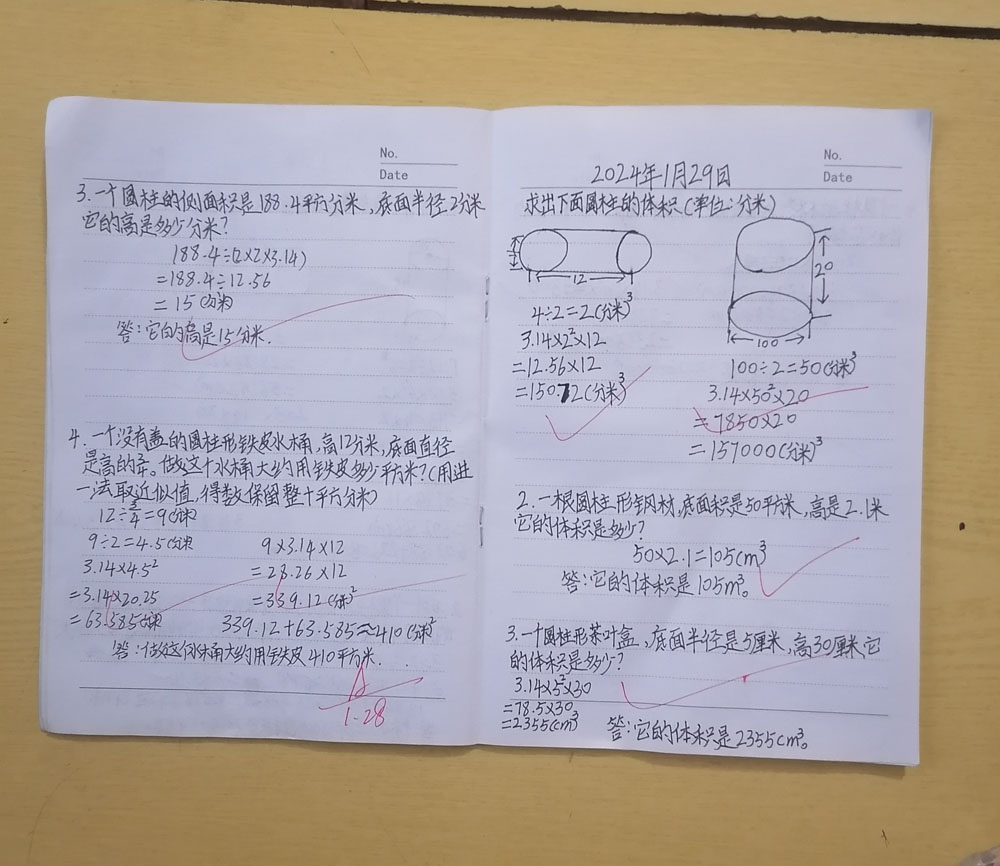 No.
Date
3.一个圆柱的侧面积是188.4平方分米,底面半径2分米
它的高是多少分米?
188.4÷(2×2×3.14)
=188.4÷12.56
=15(分米)
答:它的高是15分米.
4.一个没有盖的圆柱形铁皮水桶,高12分米,底面直径
是高的3/4。做这个水桶大约用铁皮多少平方米?(用进
一法取近似值,得数保留整十平方分米)
12÷3/4=9(分米)
9÷2=4.5(分米)
3.14×4.5²
=3.14×20.25
=63.585(分米)
9×3.14×12
=28.26×12
=339.12(分米)²
339.12+63.585≈410(分米)²
答:做这个水桶大约用铁皮410平方米.
A
1.28
No.
Date
2024年1月29日
求出下面圆柱的体积(单位:分米)
12
20
100
4÷2=2(分米)³
3.14×2²×12
=12.56×12
=150.72(分米)³
100÷2=50(分米)³
3.14×50²×20
=7850×20
=157000(分米)³
2.一根圆柱形钢材,底面积是50平方米,高是2.1米
它的体积是多少?
50×2.1=105cm³
答:它的体积是105m³。
3.一个圆柱形茶叶盒,底面半径是5厘米,高30厘米,它
的体积是多少?
3.14×5²×30
=78.5×30
=2355cm³
答:它的体积是2355cm³。